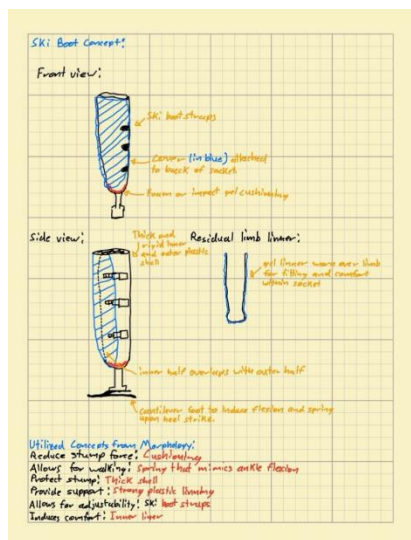 Ski Boot Concept:
Front view:
Ski boot straps
Cover (in blue) attached
to back of socket
Foam or impact gel cushioning
Side view:
Thick and
rigid inner
and outer plastic
shell
Residual limb linner:
gel linner worn over limb
for fitting and comfort
within socket
inner half overlaps with outer half
cantilever foot to induce flexion and spring
upon heel strike.
Utilized Concepts from Morphology:
Reduce stump force: Cushioning
Allows for walking: Spring that mimics ankle flexion
Protect stump: Thick shell
Provide support: Strong plastic linning
Allows for adjustability: Ski boot straps
Induces comfort: Inner liner